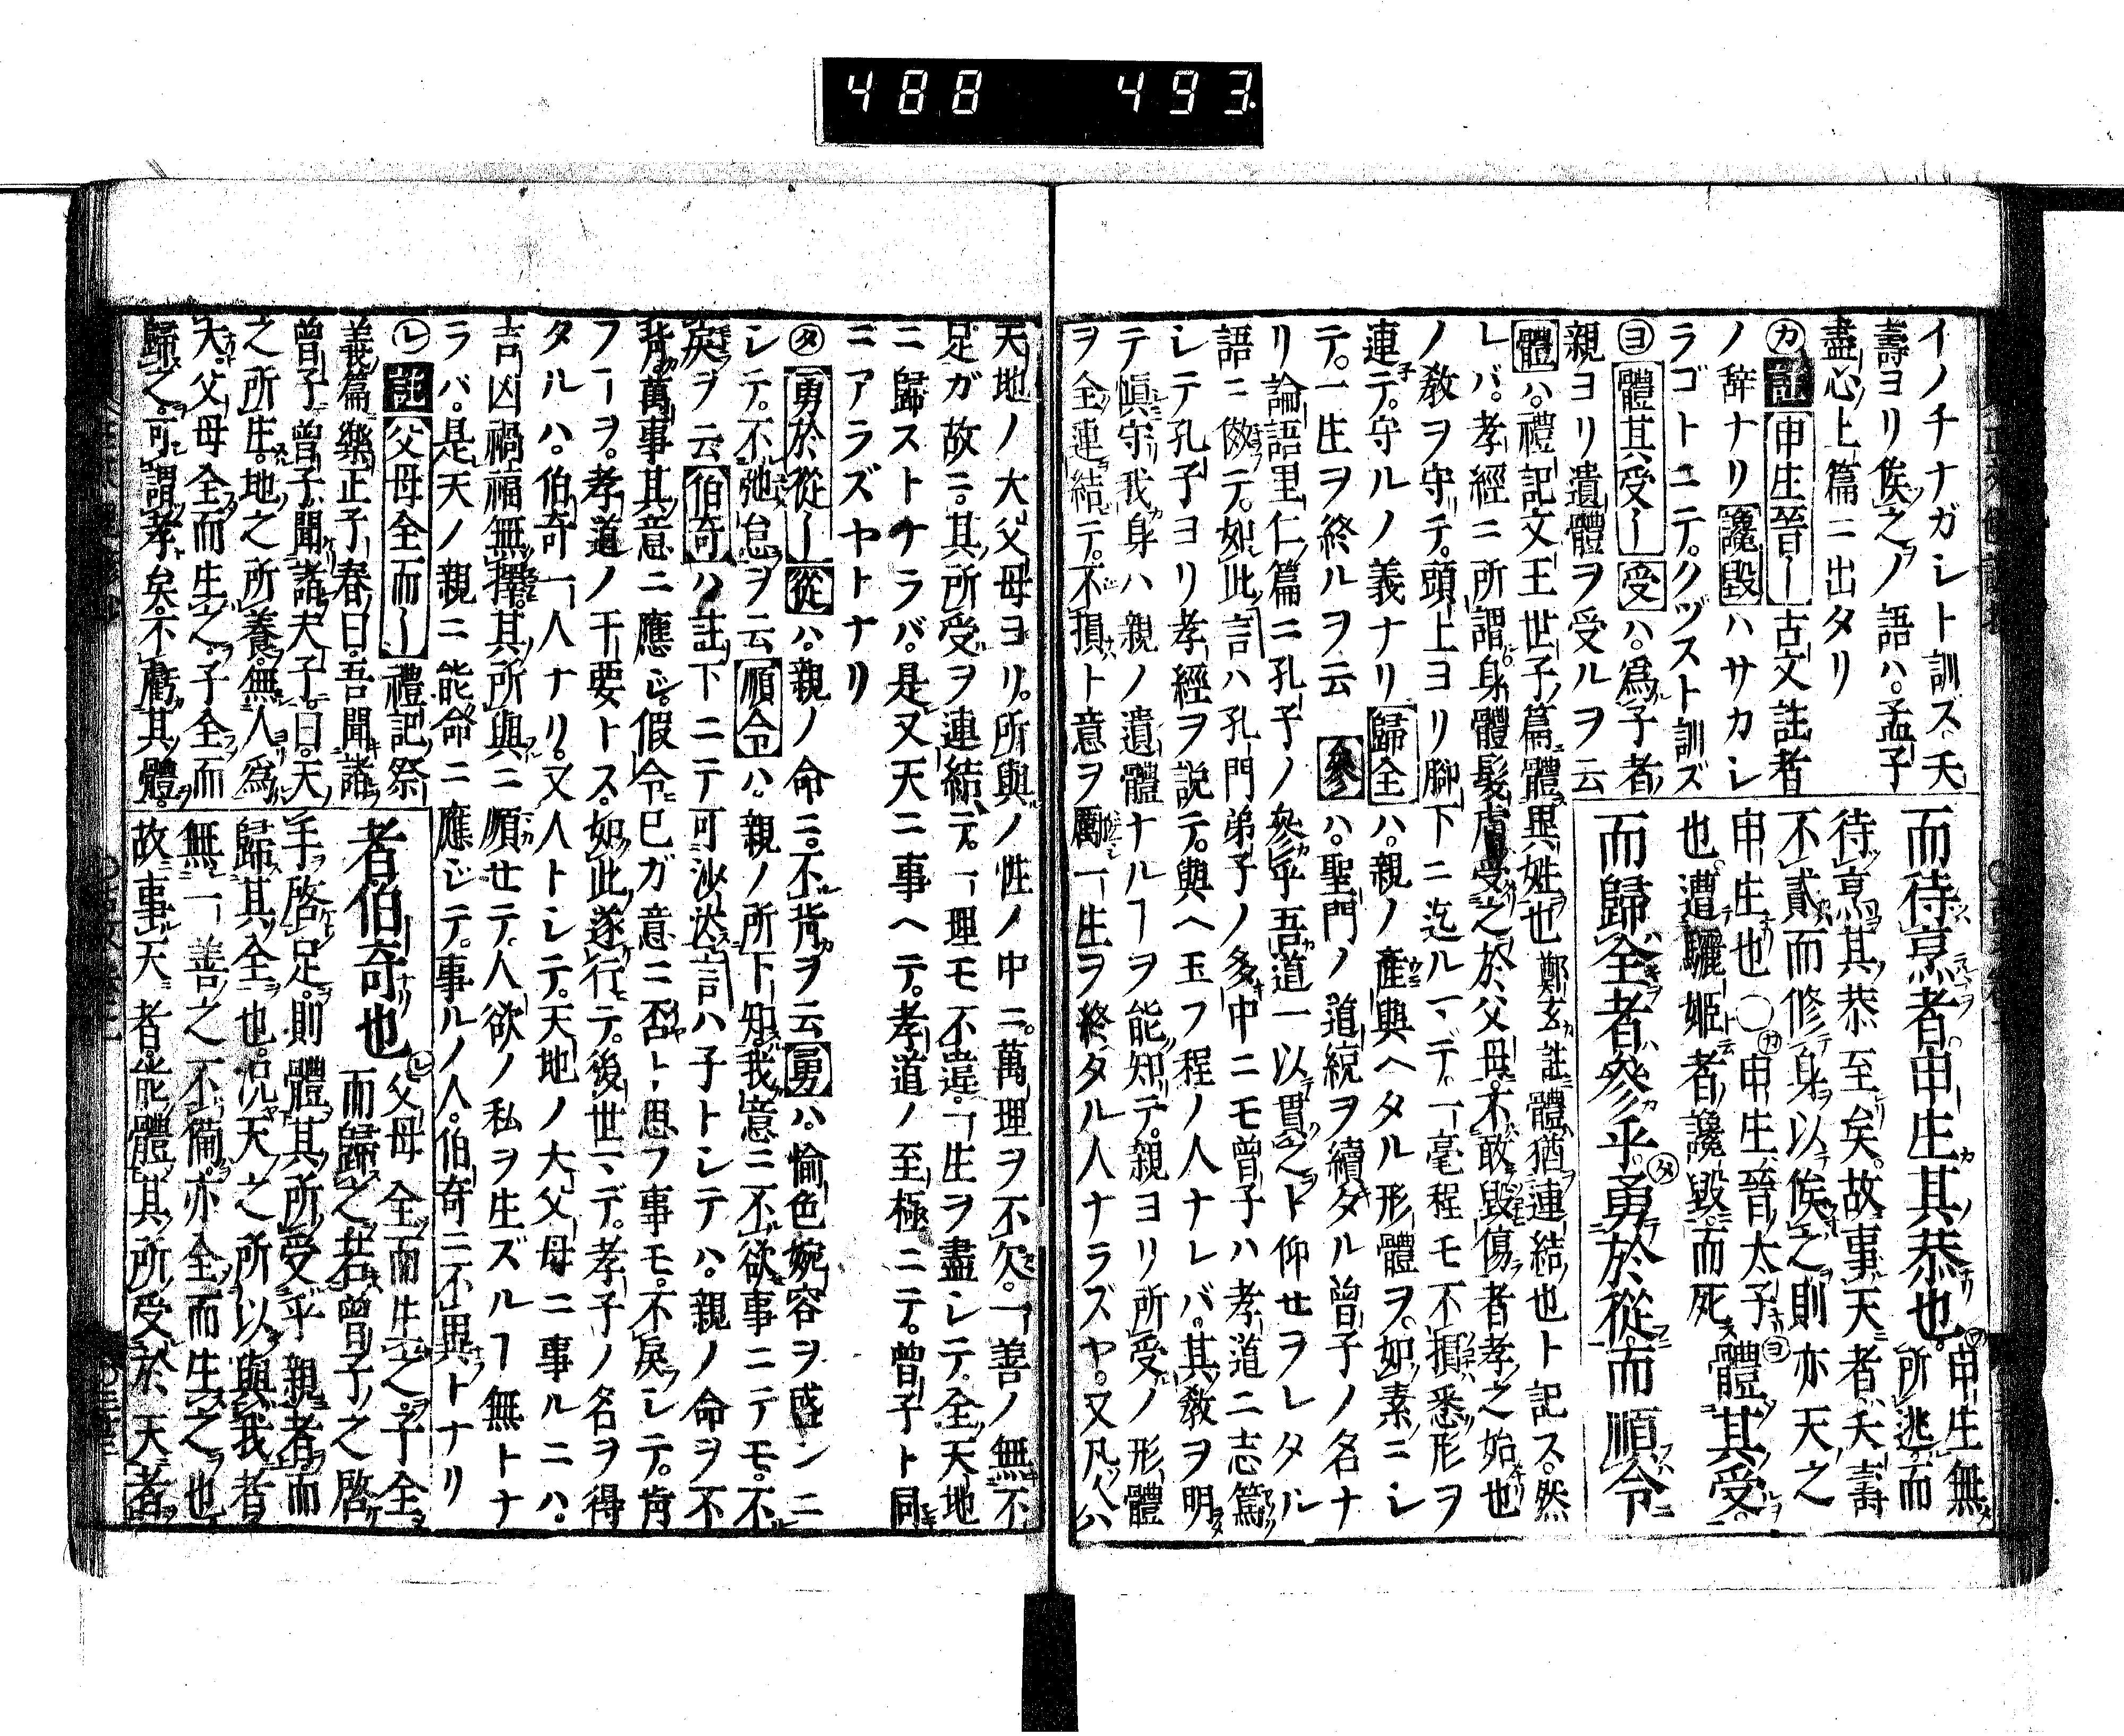 488 493
イノチナガシト訓ズ夭
壽ヨリ俟之ノ語ハ孟子
盡心上篇ニ出タリ
㋕註申生晉〡古文註者
ノ辞ナリ讒毀ハサカシ
ラゴトニテクヅスト訓ズ
㋵體其受〡受ハ爲子者
親ヨリ遺體ヲ受ルヲ云
而待烹者申生其恭也㋻申生無
所逃而
待烹其恭至矣故事天者夭壽
不貳而修身以俟之則亦天之
申生也〇㋕申生晉太子
也遭驪姬者讒毀而死㋵體其受
而歸全者參乎㋟勇於從而順令
體ハ禮記文王世子篇體異姓也鄭玄註體猶連結也ト記ス然
レバ孝經ニ所謂身體髮膚受之於父母不敢毀傷者孝之始也
ノ敎ヲ守チ頭上ヨリ脚下ニ迄ルマデ一毫程モ不損悉形ヲ
連テ守ルノ義ナリ歸全ハ親ノ產與ヘタル形體ヲ如素ニシ
テ一生ヲ終ルヲ云參ハ聖門ノ道統ヲ續タル曾子ノ名ナ
リ論語里仁篇ニ孔子ノ參乎吾道一以貫之ト仰せヲレタル
語ニ倣テ如此言ハ孔門弟子ノ多中ニモ曾子ハ孝道ニ志篤
シテ孔子ヨリ孝經ヲ説テ與ヘ玉フ程ノ人ナレバ其敎ヲ明
テ愼守我身ハ親ノ遺體ナルヿヲ能知テ親ヨリ所受ノ形體
ヲ全連結テ不損ト意ヲ勵一生ヲ終タル人ナラズヤ又凡人ハ
天地ノ大父母ヨリ所與ノ性ノ中ニ萬理ヲ不欠一善ノ無不
足ガ故ニ其所受ヲ連結テ一理モ不違一生ヲ盡シテ全天地
ニ歸ストナラバ是又天ニ事ヘテ孝道ノ至極ニテ曾子ト同
ニアラズヤトナリ
㋟勇於從〡從ハ親ノ命ニ不背ヲ云勇ハ愉色婉容ヲ盛ンニ
シテ不弛怠ヲ云順令ハ親ノ所下知我意ニ不欲事ニテモ不
戾ヲ云伯奇ハ註下ニテ可沙汰言ハ子トシテハ親ノ命ヲ不
背萬事其意ニ應ジ假令己ガ意ニ否ト思フ事モ不戾シテ肯
フヿヲ孝道ノ干要トス如此遂行テ後世マデ孝子ノ名ヲ得
タルハ伯奇一人ナリ又人トシテ天地ノ大父母ニ事ルニハ
吉凶禍福無擇其所與ニ順せテ人欲ノ私ヲ生ズルヿ無トナ
ラバ是天ノ親ニ能命ニ應ジテ事ルノ人伯奇ニ不異トナリ
㋹註父母全而〡禮記祭
義篇樂正子春曰吾聞諸
曾子曾子聞諸夫子曰天
之所生地之所養無人爲
大父母全而生之子全而
歸之可謂孝矣不虧其體
者伯奇也㋹父母全而生之子全
而歸之若曾子之啓
手啓足則體其所受乎親者而
歸其全也况天之所以與我者
無一善之不備亦全而生之也
故事天者能體其所受於天者